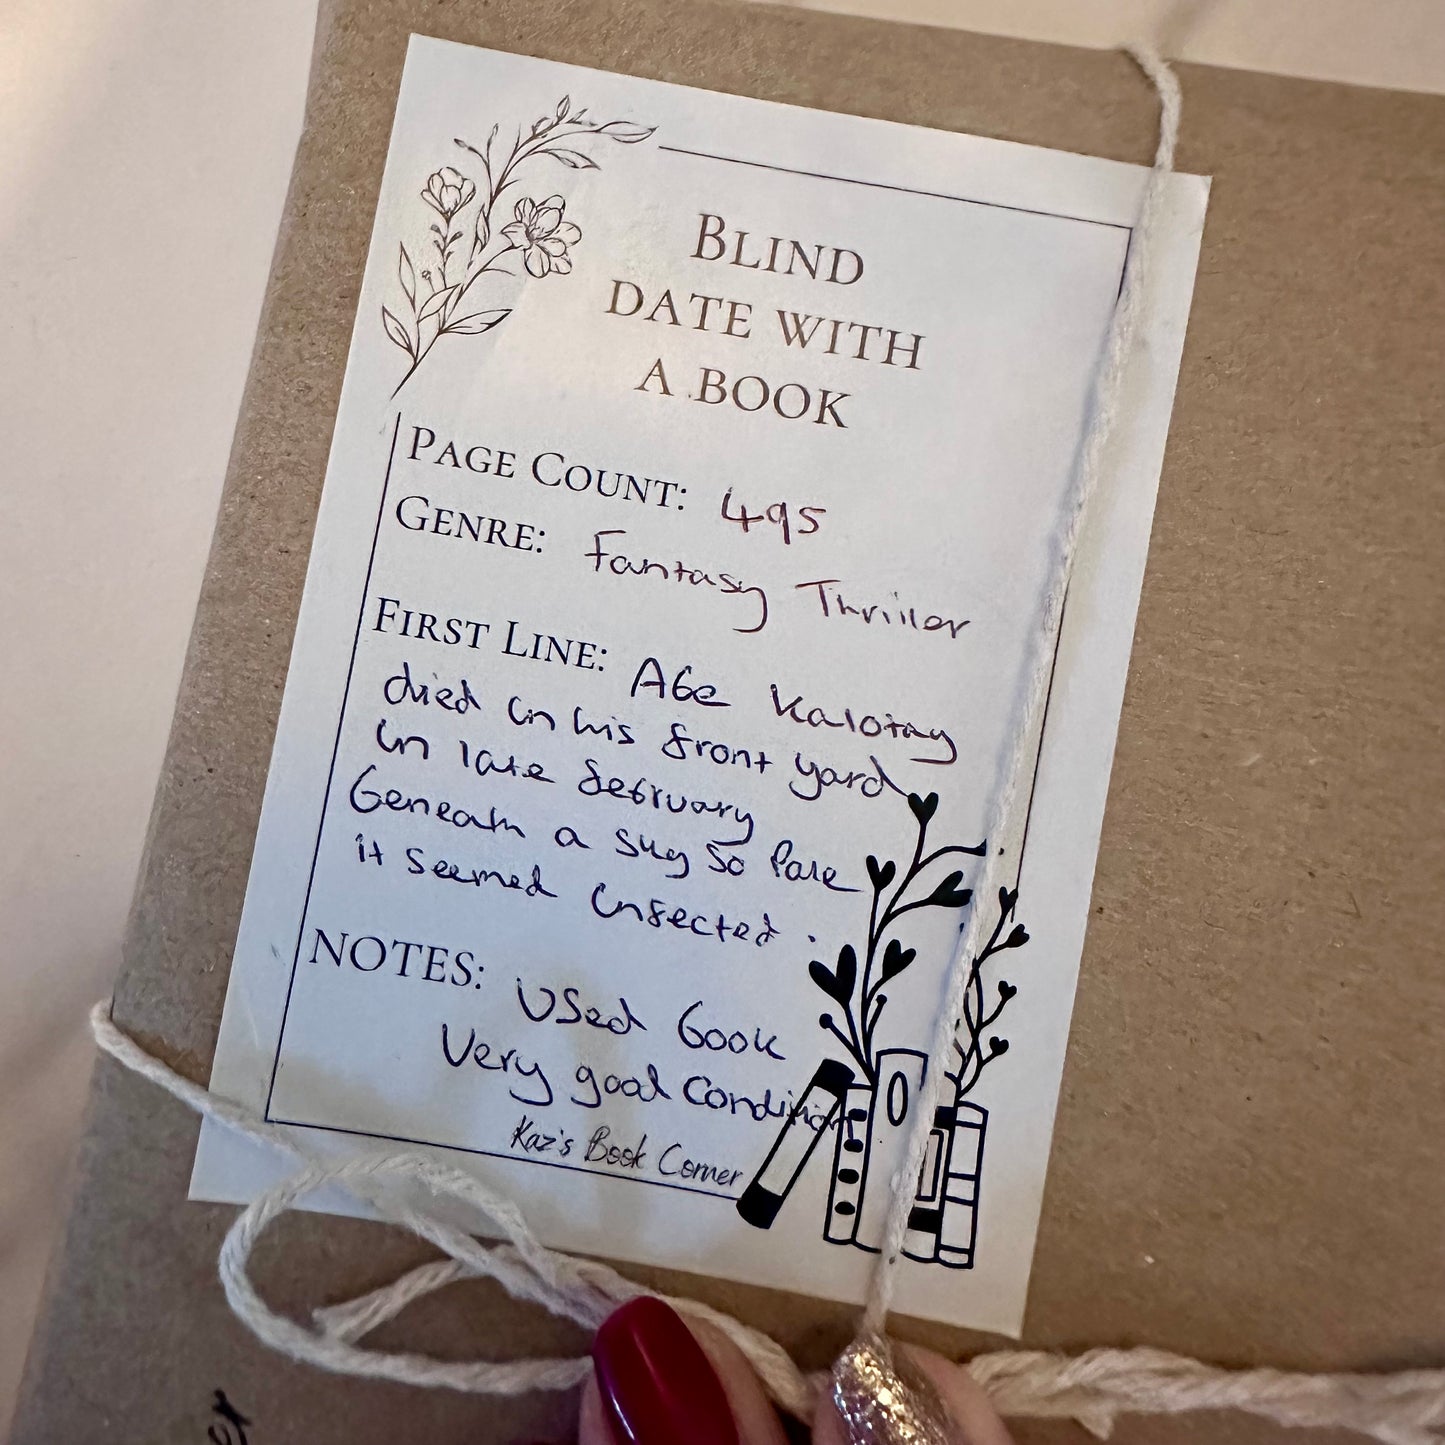 BLIND
DATE WITH
A BOOK
PAGE COUNT: 495
GENRE: Fantasy Thriller
FIRST LINE: Abe Kalotay
died in his front yard
in late february
beneath a sky so pale
it seemed infected.
NOTES: Used book
Very good condition
Kaz's Book Corner